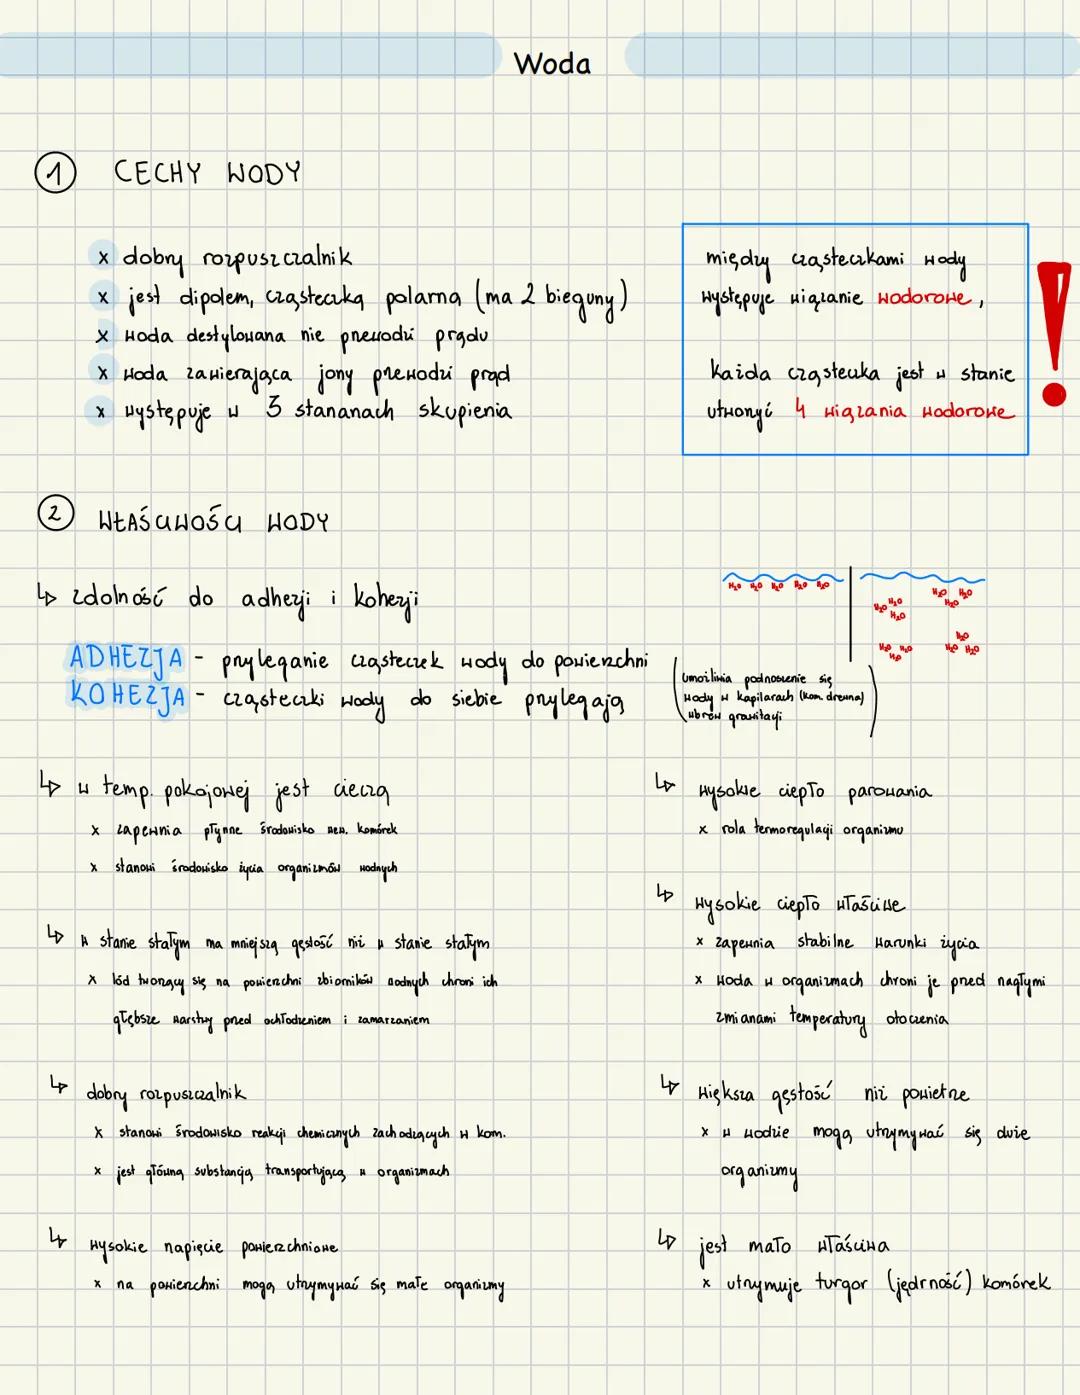 Woda
1 CECHY WODY
x dobry rozpuszczalnik
x jest dipolem, cząsteczką polarną (ma 2 bieguny)
x woda destylowana nie przewodzi prądu
x woda zawierająca jony przewodzi prąd
x występuje w 3 stananach skupienia
między cząsteczkami wody
występuje wiązanie wodorowe,
każda cząsteczka jest w stanie
utworzyć 4 wiązania wodorowe
!
2 WŁAŚCIWOŚCI WODY
↳ zdolność do adhezji i kohezji
ADHEZJA - przyleganie cząsteczek wody do powierzchni
KOHEZJA - cząsteczki wody do siebie przylegają
H₂O H₂O H₂O H₂O H₂O
H₂O H₂O
H₂O H₂O H₂O
H₂O
H₂O
H₂O H₂O H₂O H₂O
H₂O
(umożliwia podnoszenie się
wody w kapilarach (kom. drewna)
wbrew grawitacji)
↳ w temp. pokojowej jest cieczą
x zapewnia płynne środowisko wew. komórek
x stanowi środowisko życia organizmów wodnych
↳ w stanie stałym ma mniejszą gęstość niż w stanie stałym
x lód tworzący się na powierzchni zbiorników wodnych chroni ich
głębsze warstwy przed ochłodzeniem i zamarzaniem
↳ dobry rozpuszczalnik
x stanowi środowisko reakcji chemicznych zachodzących w kom.
x jest główną substancją transportującą w organizmach
↳ wysokie napięcie powierzchniowe
x na powierzchni mogą utrzymywać się małe organizmy
↳ wysokie ciepło parowania
x rola termoregulacji organizmu
↳ wysokie ciepło właściwe
x zapewnia stabilne warunki życia
x woda w organizmach chroni je przed nagłymi
zmianami temperatury otoczenia
↳ większa gęstość niż powietrze
x w wodzie mogą utrzymywać się duże
organizmy
↳ jest mało właściwa
x utrzymuje turgor (jędrność) komórek